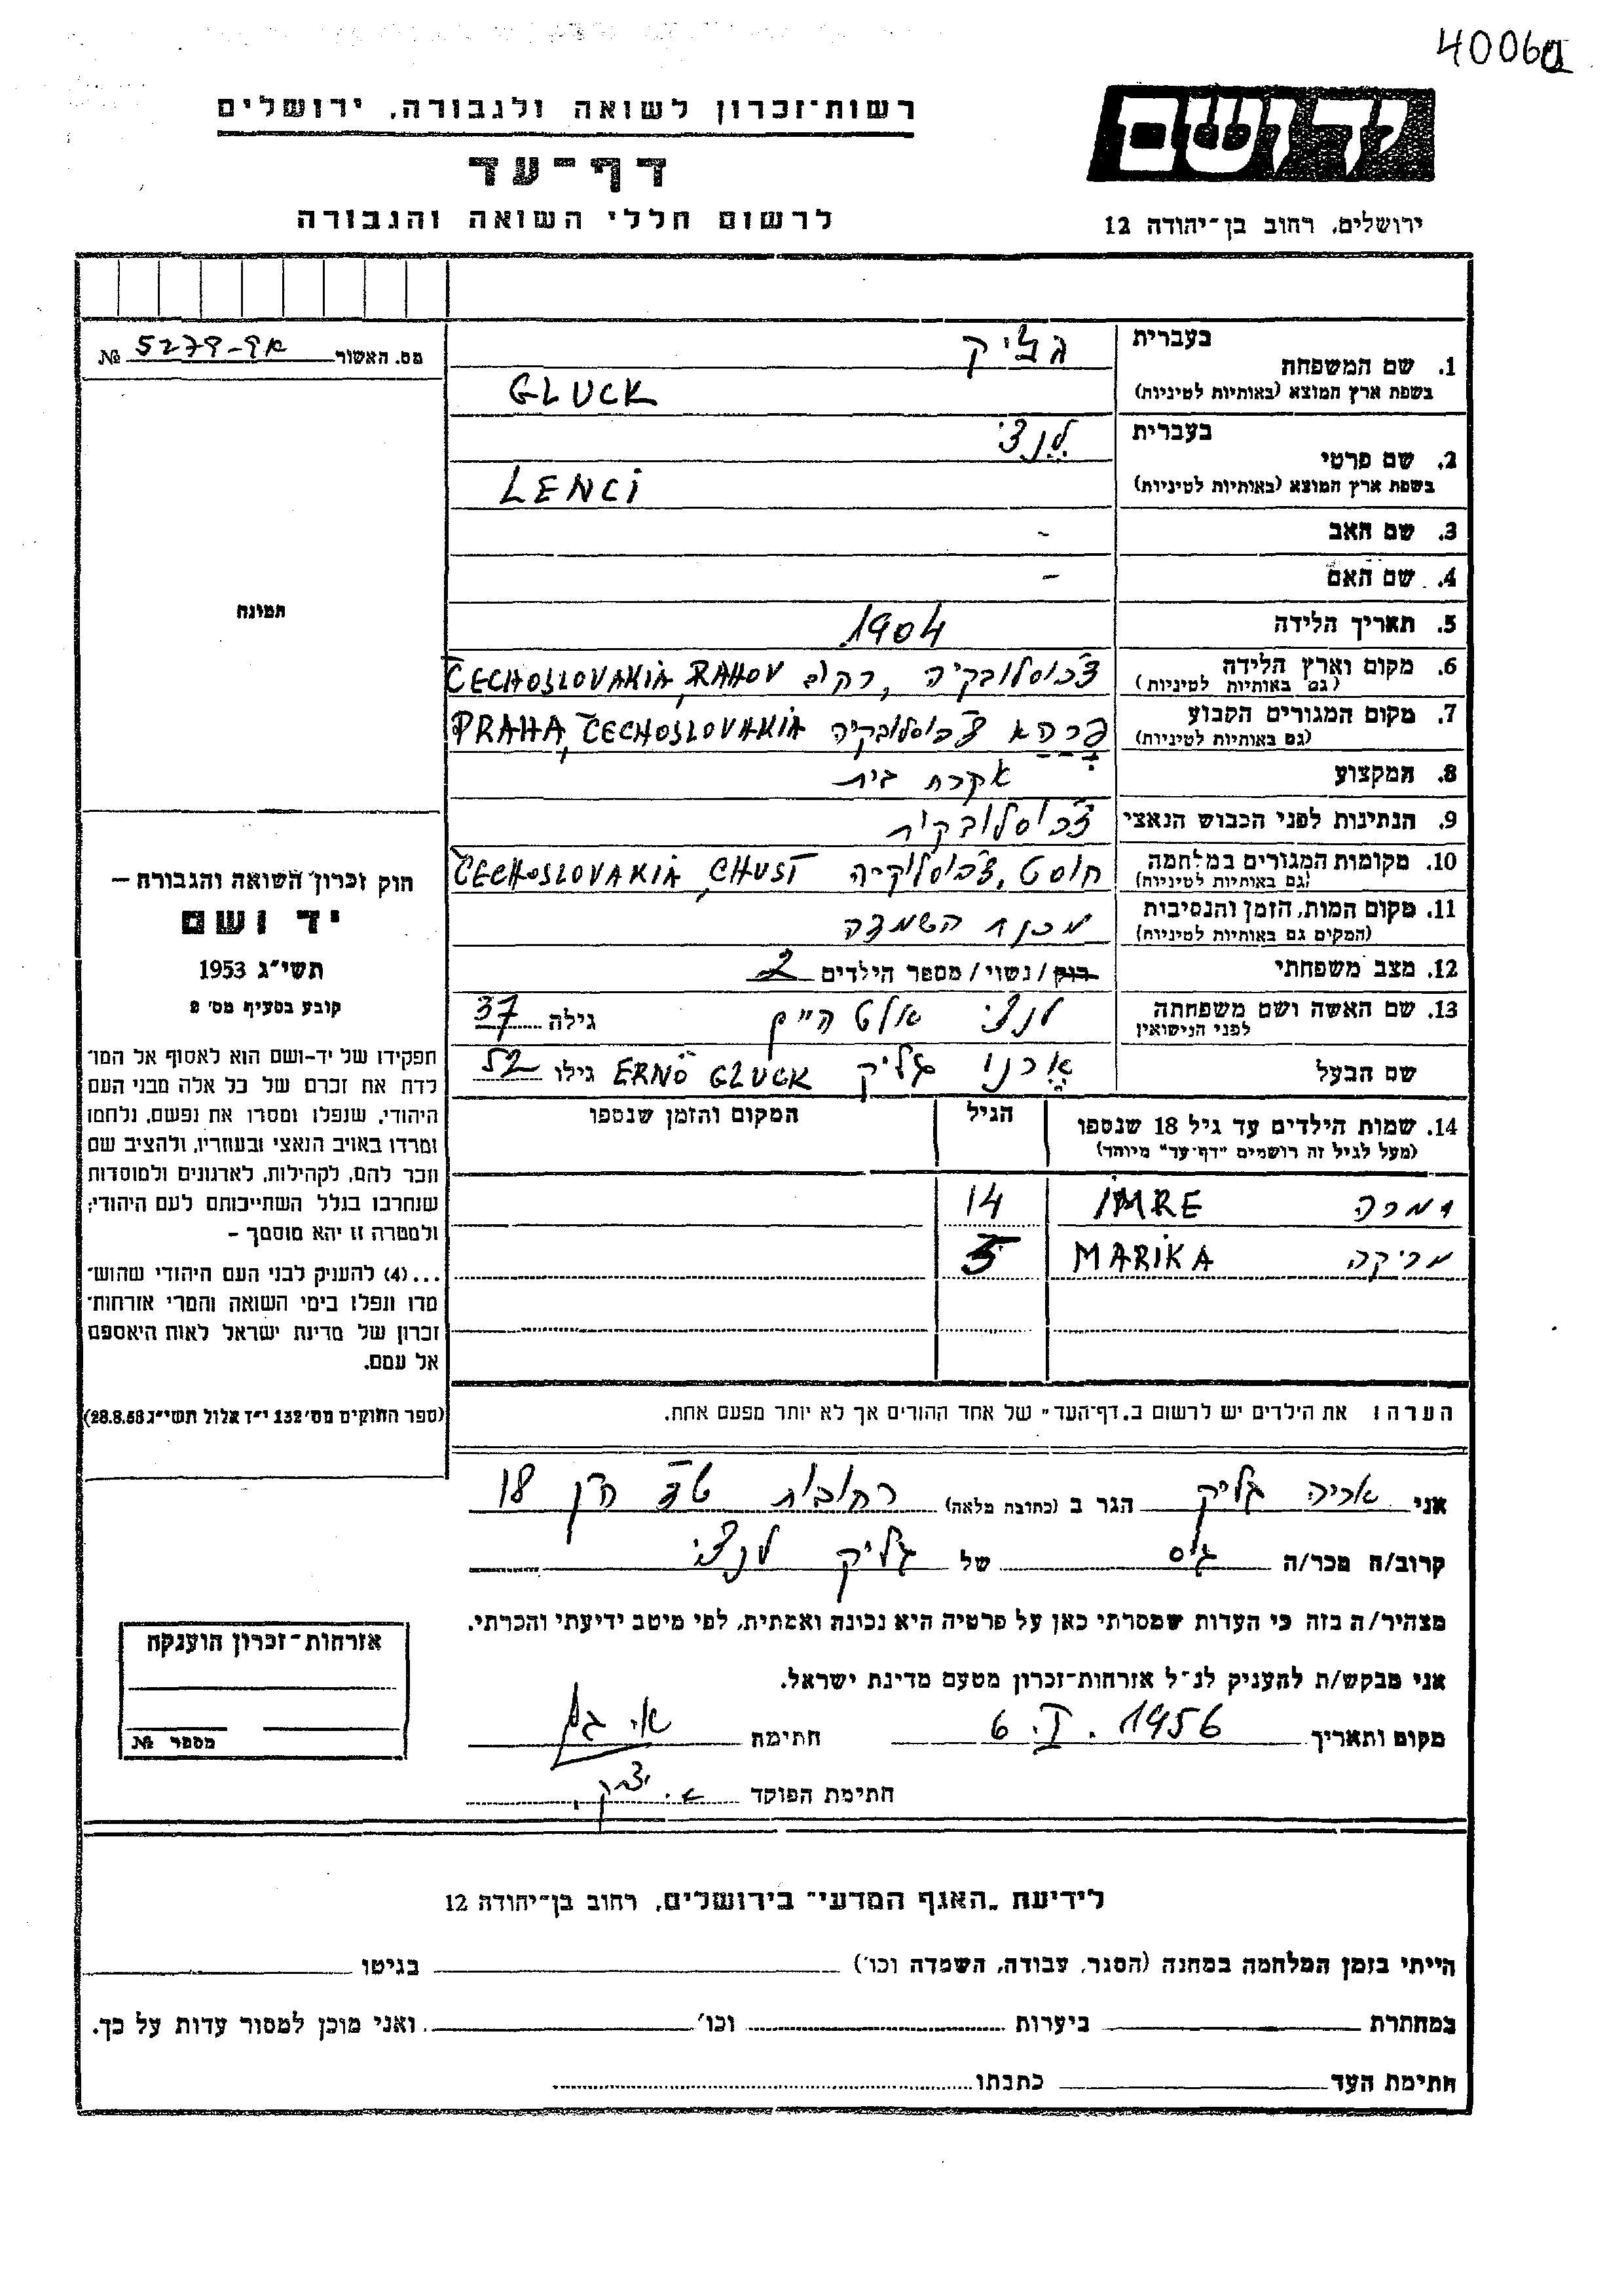 40060
רשות־זכרון לשואה ולגבורה, ירושלים
יד ושם
דף־עד
לרשום חללי השואה והגבורה
ירושלים, רחוב בן־יהודה 12
מס. האשור 5279-9א №
בעברית
1. שם המשפחה גליק
בשפת ארץ המוצא (באותיות לטיניות) GLUCK
בעברית
2. שם פרטי לנצי
בשפת ארץ המוצא (באותיות לטיניות) LENCI
3. שם האב -
4. שם האם -
5. תאריך הלידה 1904
6. מקום וארץ הלידה צ'כוסלובקיה, רהוב ČECHOSLOVAKIA, RAHOV
(גם באותיות לטיניות)
7. מקום המגורים הקבוע פרהא צ'כוסלובקיה PRAHA, ČECHOSLOVAKIA
(גם באותיות לטיניות)
8. המקצוע עקרת בית
9. הנתינות לפני הכבוש הנאצי צ'כוסלובקית
10. מקומות המגורים במלחמה חוסט, צ'כוסלוקיה ČECHOSLOVAKIA, CHUST
(גם באותיות לטיניות)
11. מקום המות, הזמן והנסיבות מכנה השמדה
(המקום גם באותיות לטיניות)
12. מצב משפחתי רוק/נשוי/ מספר הילדים 2
13. שם האשה ושם משפחתה לפני הנישואין לנצי גילה 37
שם הבעל ארנו גליק ERNÖ GLUCK גילו 52
14. שמות הילדים עד גיל 18 שנספו הגיל המקום והזמן שנספו
(מעל לגיל זה רושמים "דף־עד" מיוחד)
אמרה IMRE 14
מריקה MARIKA 5
הערה: את הילדים יש לרשום ב„דף־העד" של אחד ההורים אך לא יותר מפעם אחת.
תמונה
חוק זכרון השואה והגבורה –
יד ושם
תשי"ג 1953
קובע בסעיף מס' 2
תפקידו של יד-ושם הוא לאסוף אל המו־
לדת את זכרם של כל אלה מבני העם
היהודי, שנפלו ומסרו את נפשם, נלחמו
ומרדו באויב הנאצי ובעוזריו, ולהציב שם
וזכר להם, לקהילות, לארגונים ולמוסדות
שנחרבו בגלל השתייכותם לעם היהודי;
ולמטרה זו יהא מוסמך –
...(4) להעניק לבני העם היהודי שהוש־
מדו ונפלו בימי השואה והמרי אזרחות־
זכרון של מדינת ישראל לאות היאספם
אל עמם.
(ספר החוקים מס' 132 י"ז אלול תשי"ג 28.8.53)
אני אריה גליק הגר ב (כתובת מלאה) רחובות 18
קרוב/ה מכר/ה גיס של גליק לנצי
מצהיר/ה בזה כי העדות שמסרתי כאן על פרטיה היא נכונה ואמתית, לפי מיטב ידיעתי והכרתי.
אני מבקש/ת להעניק לנ"ל אזרחות-זכרון מטעם מדינת ישראל.
מקום ותאריך 6. I. 1956 חתימה
חתימת הפוקד
אזרחות־זכרון הוענקה
מספר №
לידיעת „האגף המדעי" בירושלים, רחוב בן־יהודה 12
הייתי בזמן המלחמה במחנה (הסגר, עבודה, השמדה וכו') בגיטו
במחתרת ביערות וכו' ואני מוכן למסור עדות על כך.
חתימת העד כתבתו